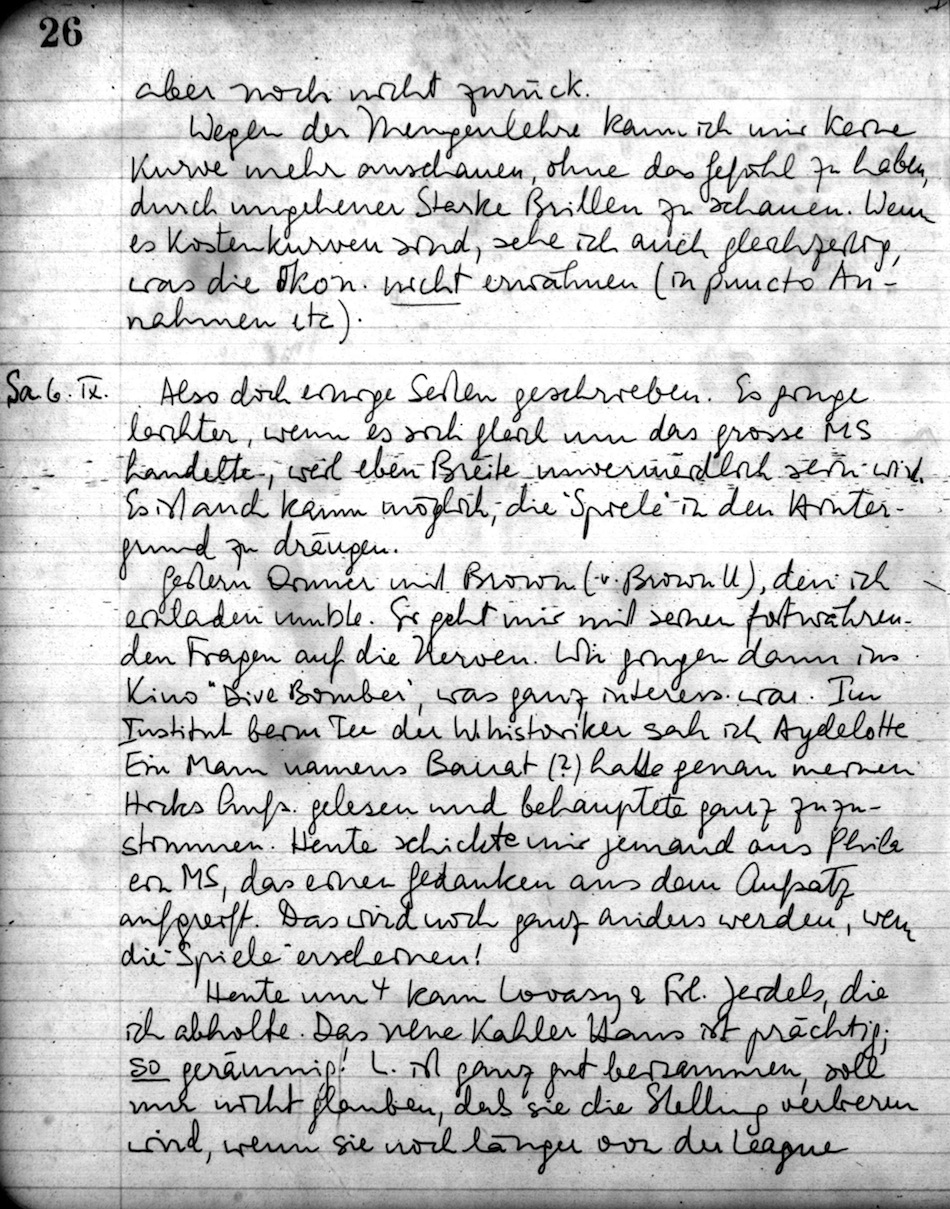 26
aber noch nicht zurück.
Wegen der Mengenlehre kann ich mir keine
Kurve mehr anschauen, ohne das Gefühl zu haben,
durch ungeheuer starke Brillen zu schauen. Wenn
es Kostenkurven sind, sehe ich auch gleichzeitig,
was die Ökon. nicht erwähnen (in puncto An-
nahmen etc).
Sa. 6. IX. Also doch einige Seiten geschrieben. Es ginge
leichter, wenn es sich gleich um das grosse MS
handelte, weil eben Breite unvermeidlich sein wird.
Es ist auch kaum möglich, die "Spiele" in den Hinter-
grund zu drängen.
Gestern Dinner mit Brown (v. Brown U), den ich
einladen musste. Er geht mir mit seinen fortwähren-
den Fragen auf die Nerven. Wir gingen dann ins
Kino "Dive Bomber", was ganz interess. war. Im
Institut beim Tee der Whistoriker sah ich Aydelotte
Ein Mann namens Bairat (?) hatte genau meinen
Hicks Aufs. gelesen und behauptete ganz zuzu-
stimmen. Heute schickte mir jemand aus Phila
ein MS, das einen Gedanken aus dem Aufsatz
aufgreift. Das wird noch ganz anders werden, wenn
die "Spiele" erscheinen!
Heute um 4 kam Lovasy & Frl. Jerdels, die
ich abholte. Das neue Kahler Haus ist prächtig;
so geräumig! L. ist ganz gut beisammen, soll
nur nicht glauben, daß sie die Stellung verlieren
wird, wenn sie noch länger von der League